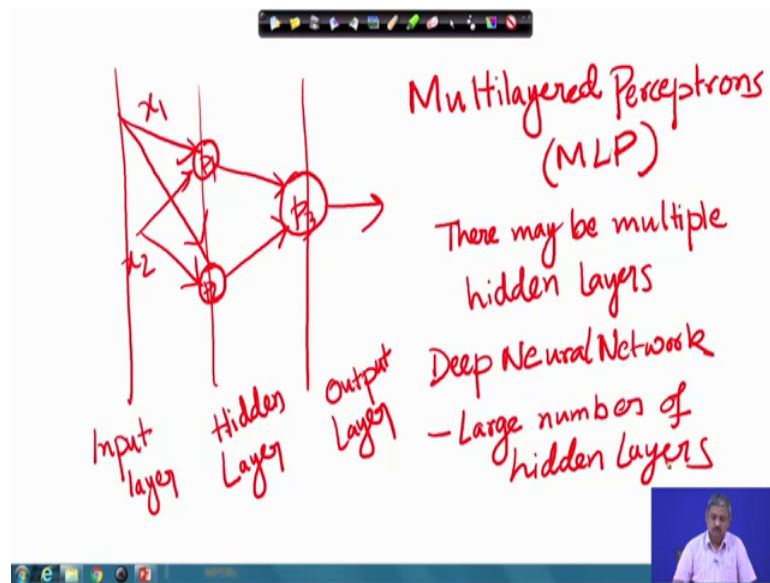 x1
x2
P1
P2
P3
Input layer
Hidden Layer
Output Layer
Multilayered Perceptrons
(MLP)
There may be multiple
hidden layers
Deep Neural Network
- Large number of
hidden Layers